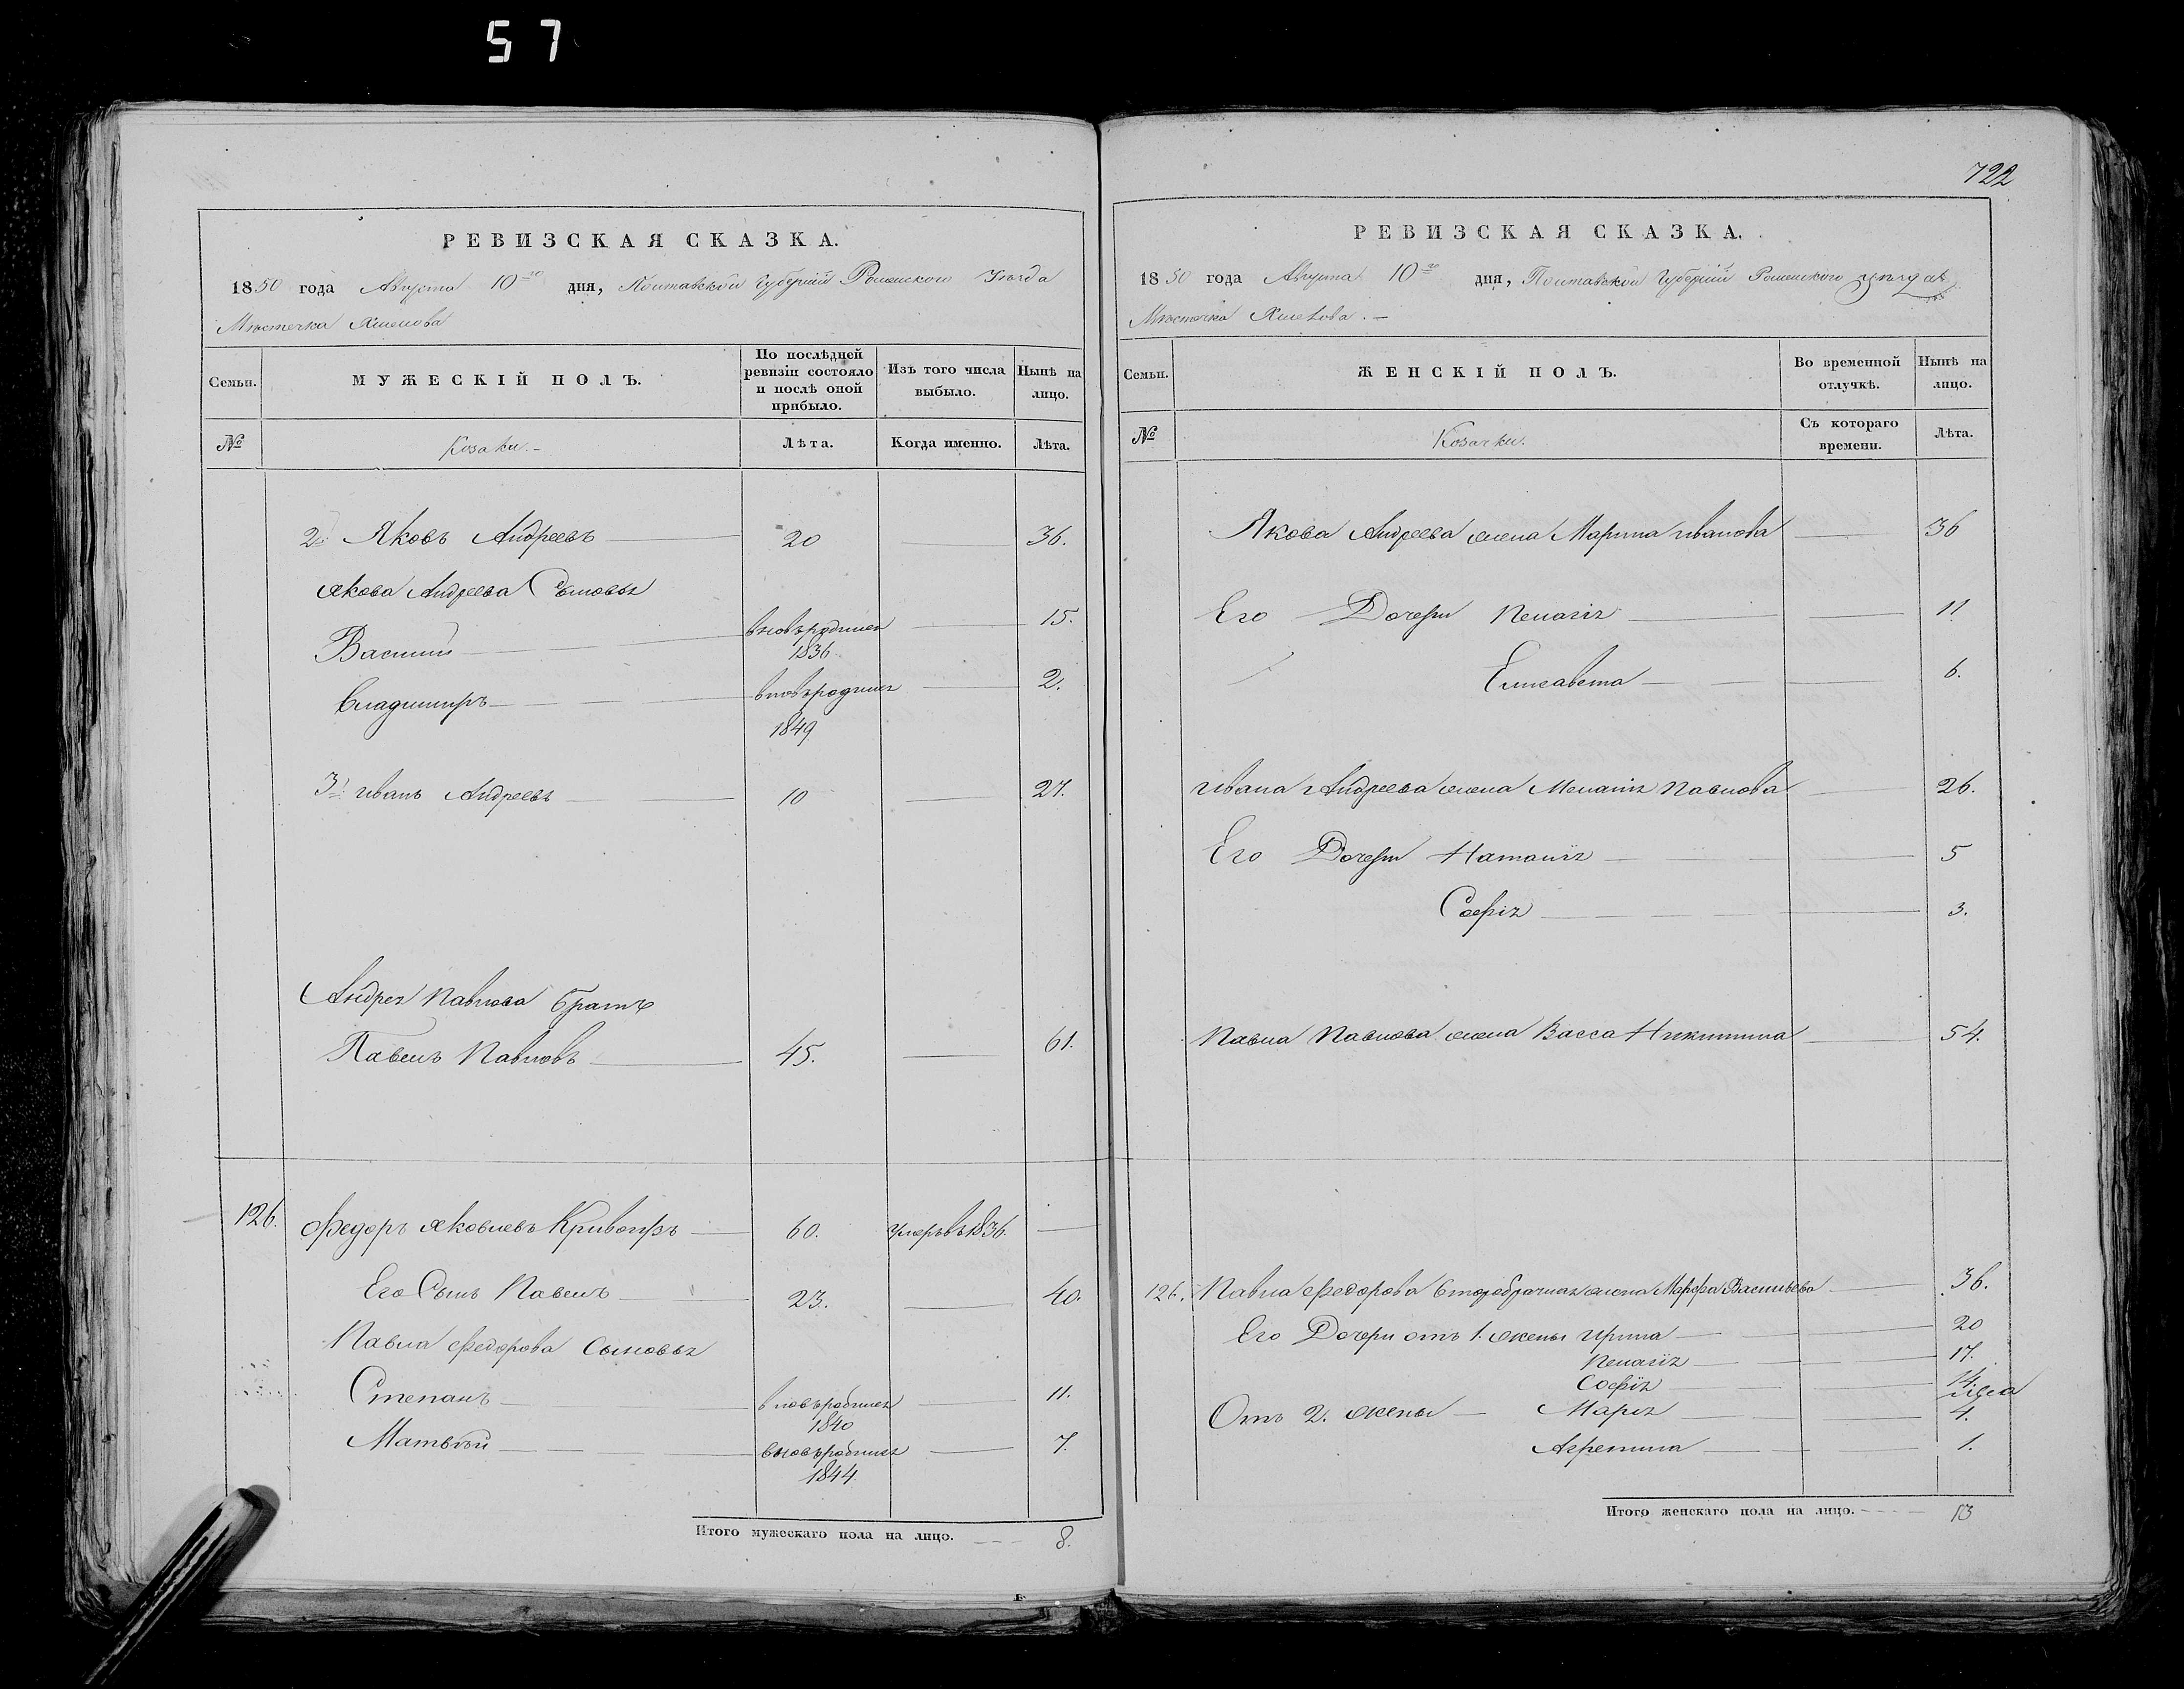 57
РЕВИЗСКАЯ СКАЗКА.
1850 года Августа 10го дня, Полтавской Губерніи Роменского Уѣзда
Мѣстечка Хмелова
Семьи.
МУЖЕСКІЙ ПОЛЪ.
По послѣдней ревизіи состояло и послѣ оной прибыло.
Изъ того числа выбыло.
Нынѣ на лицо.
№
Козаки.
Лѣта.
Когда именно.
Лѣта.
2й Яковъ Андреевъ 20 36.
Якова Андреева Сыновья
Василий вновьродился 1836 15.
Владимиръ вновьродился 1849 2.
3й Иванъ Андреевъ 10 27.
Андрея Павлова братъ
Павелъ Павловъ 45. 61.
126. Федоръ Яковлевъ 60. Умеръ въ 1836.
Его Сынъ Павелъ 23. 40.
Павла Федорова Сыновья
Степанъ вновьродился 1840 11.
Матвѣй вновьродился 1844 7.
Итого мужескаго пола на лицо. 8.
722
РЕВИЗСКАЯ СКАЗКА.
1850 года Августа 10го дня, Полтавской Губерніи Роменского уѣзда
Мѣстечка Хмелова.
Семьи.
ЖЕНСКІЙ ПОЛЪ.
Во временной отлучкѣ.
Нынѣ на лицо.
№
Козачки.
Съ котораго времени.
Лѣта.
Якова Андреева жена Марина Иванова 36
Его Дочери Пелагія 11
Елисавета 6.
Ивана Андреева жена Меланія Павлова 26.
Его Дочери Наталія 5
Софія 3.
Павла Павлова жена Васса Никитина 54.
126. Павла Федорова второбрачная жена Марфа Васильева 36.
Его Дочери отъ 1. жены Ирина 20
Пелагія 17.
Софія 14.
Отъ 2. жены Марія 4.
Агрепина 1.
Итого женскаго пола на лицо. 13